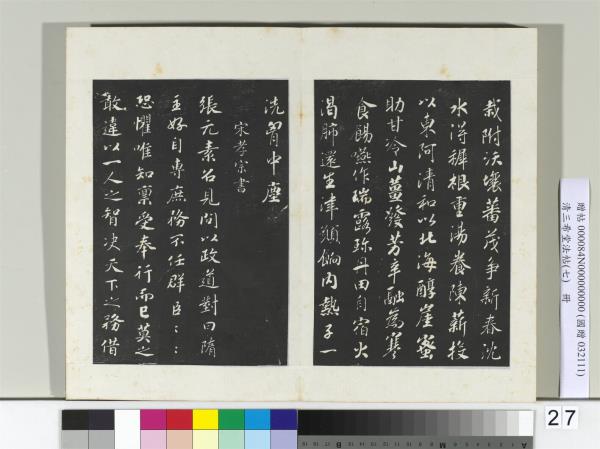 栽附沃壤蕃茂爭新春沈
水得稚根重湯養陳薪投
以東阿清和以北海醇崖蜜
助甘冷山薑發芳辛融為寒
食餳嚥作瑞露珍丹田自宿火
渴肺還生津願餉內熱子一
洗胷中塵
宋孝宗書
張元素名見問以政道對曰隋
主好自專庶務不任群臣〻〻
恐懼唯知稟受奉行而已莫之
敢違以一人之智決天下之務借
贈帖 000084N000000000 (國贈 032111)
清三希堂法帖(七) 冊
27